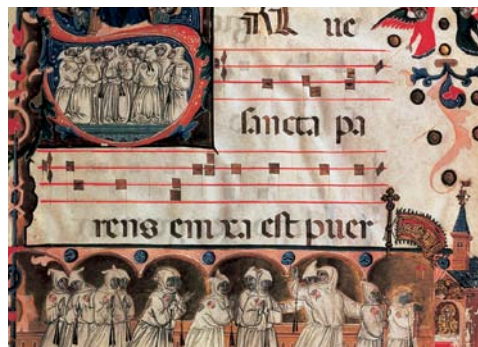 SAL ue
sancta pa
rens eni xa est puer